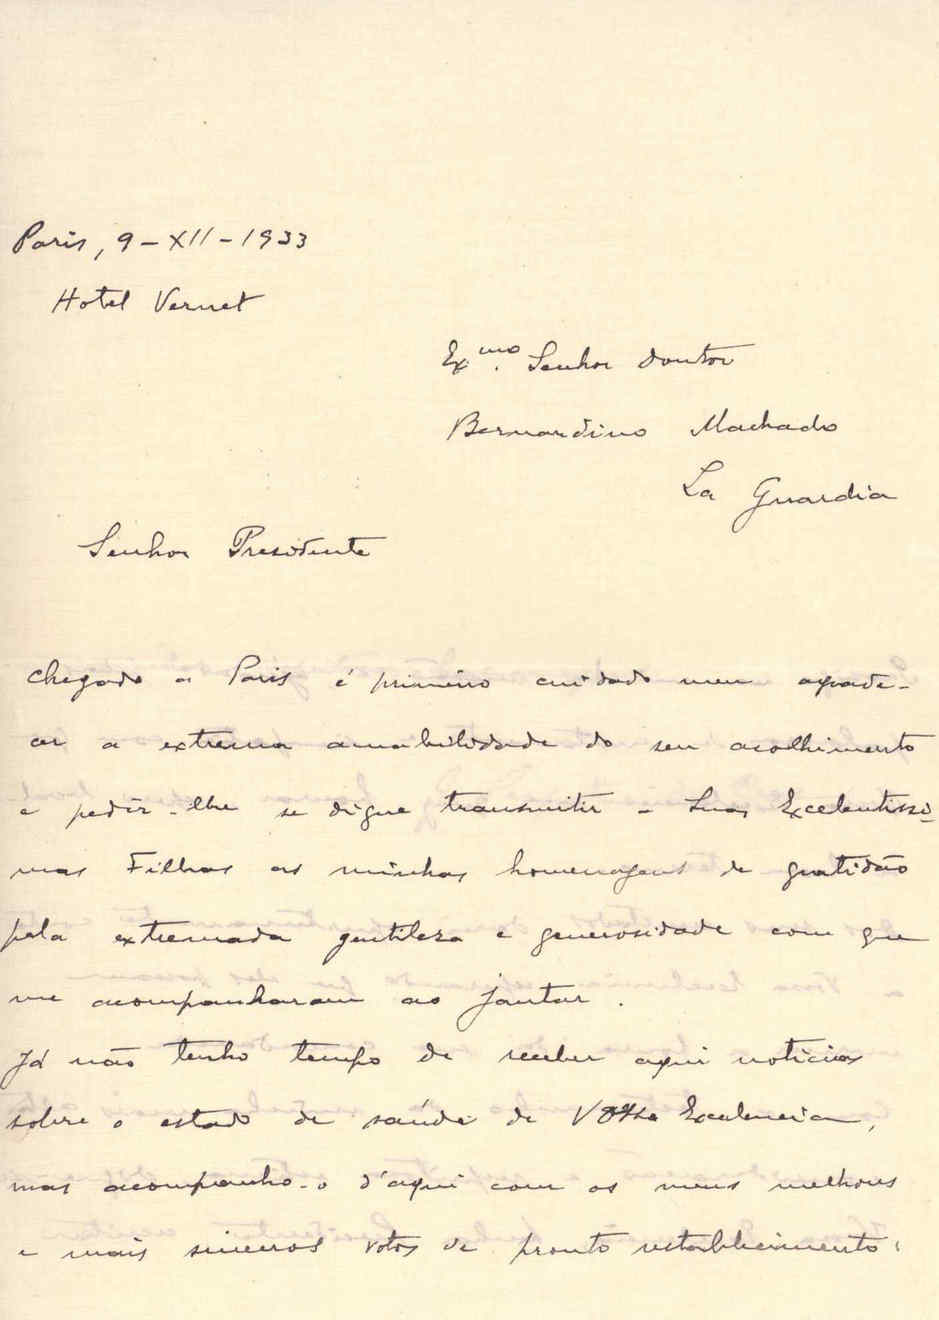 Paris, 9-XII-1933
Hotel Vernet
Ex.mo Senhor Doutor
Bernardino Machado
La Guardia
Senhor Presidente
Chegado a Paris é primeiro cuidado meu agrade-
cer a extrema amabilidade do seu acolhimento
e pedir-lhe se digne transmitir a Suas Excelentissi-
mas Filhas as minhas homenagens de gratidão
pela extremada gentileza e generosidade com que
me acompanharam ao jantar.
Já não tenho tempo de receber aqui noticias
sobre o estado de saúde de Vossa Excelencia,
mas acompanho-o d'aqui com os meus melhores
e mais sinceros votos de pronto restabelecimento.